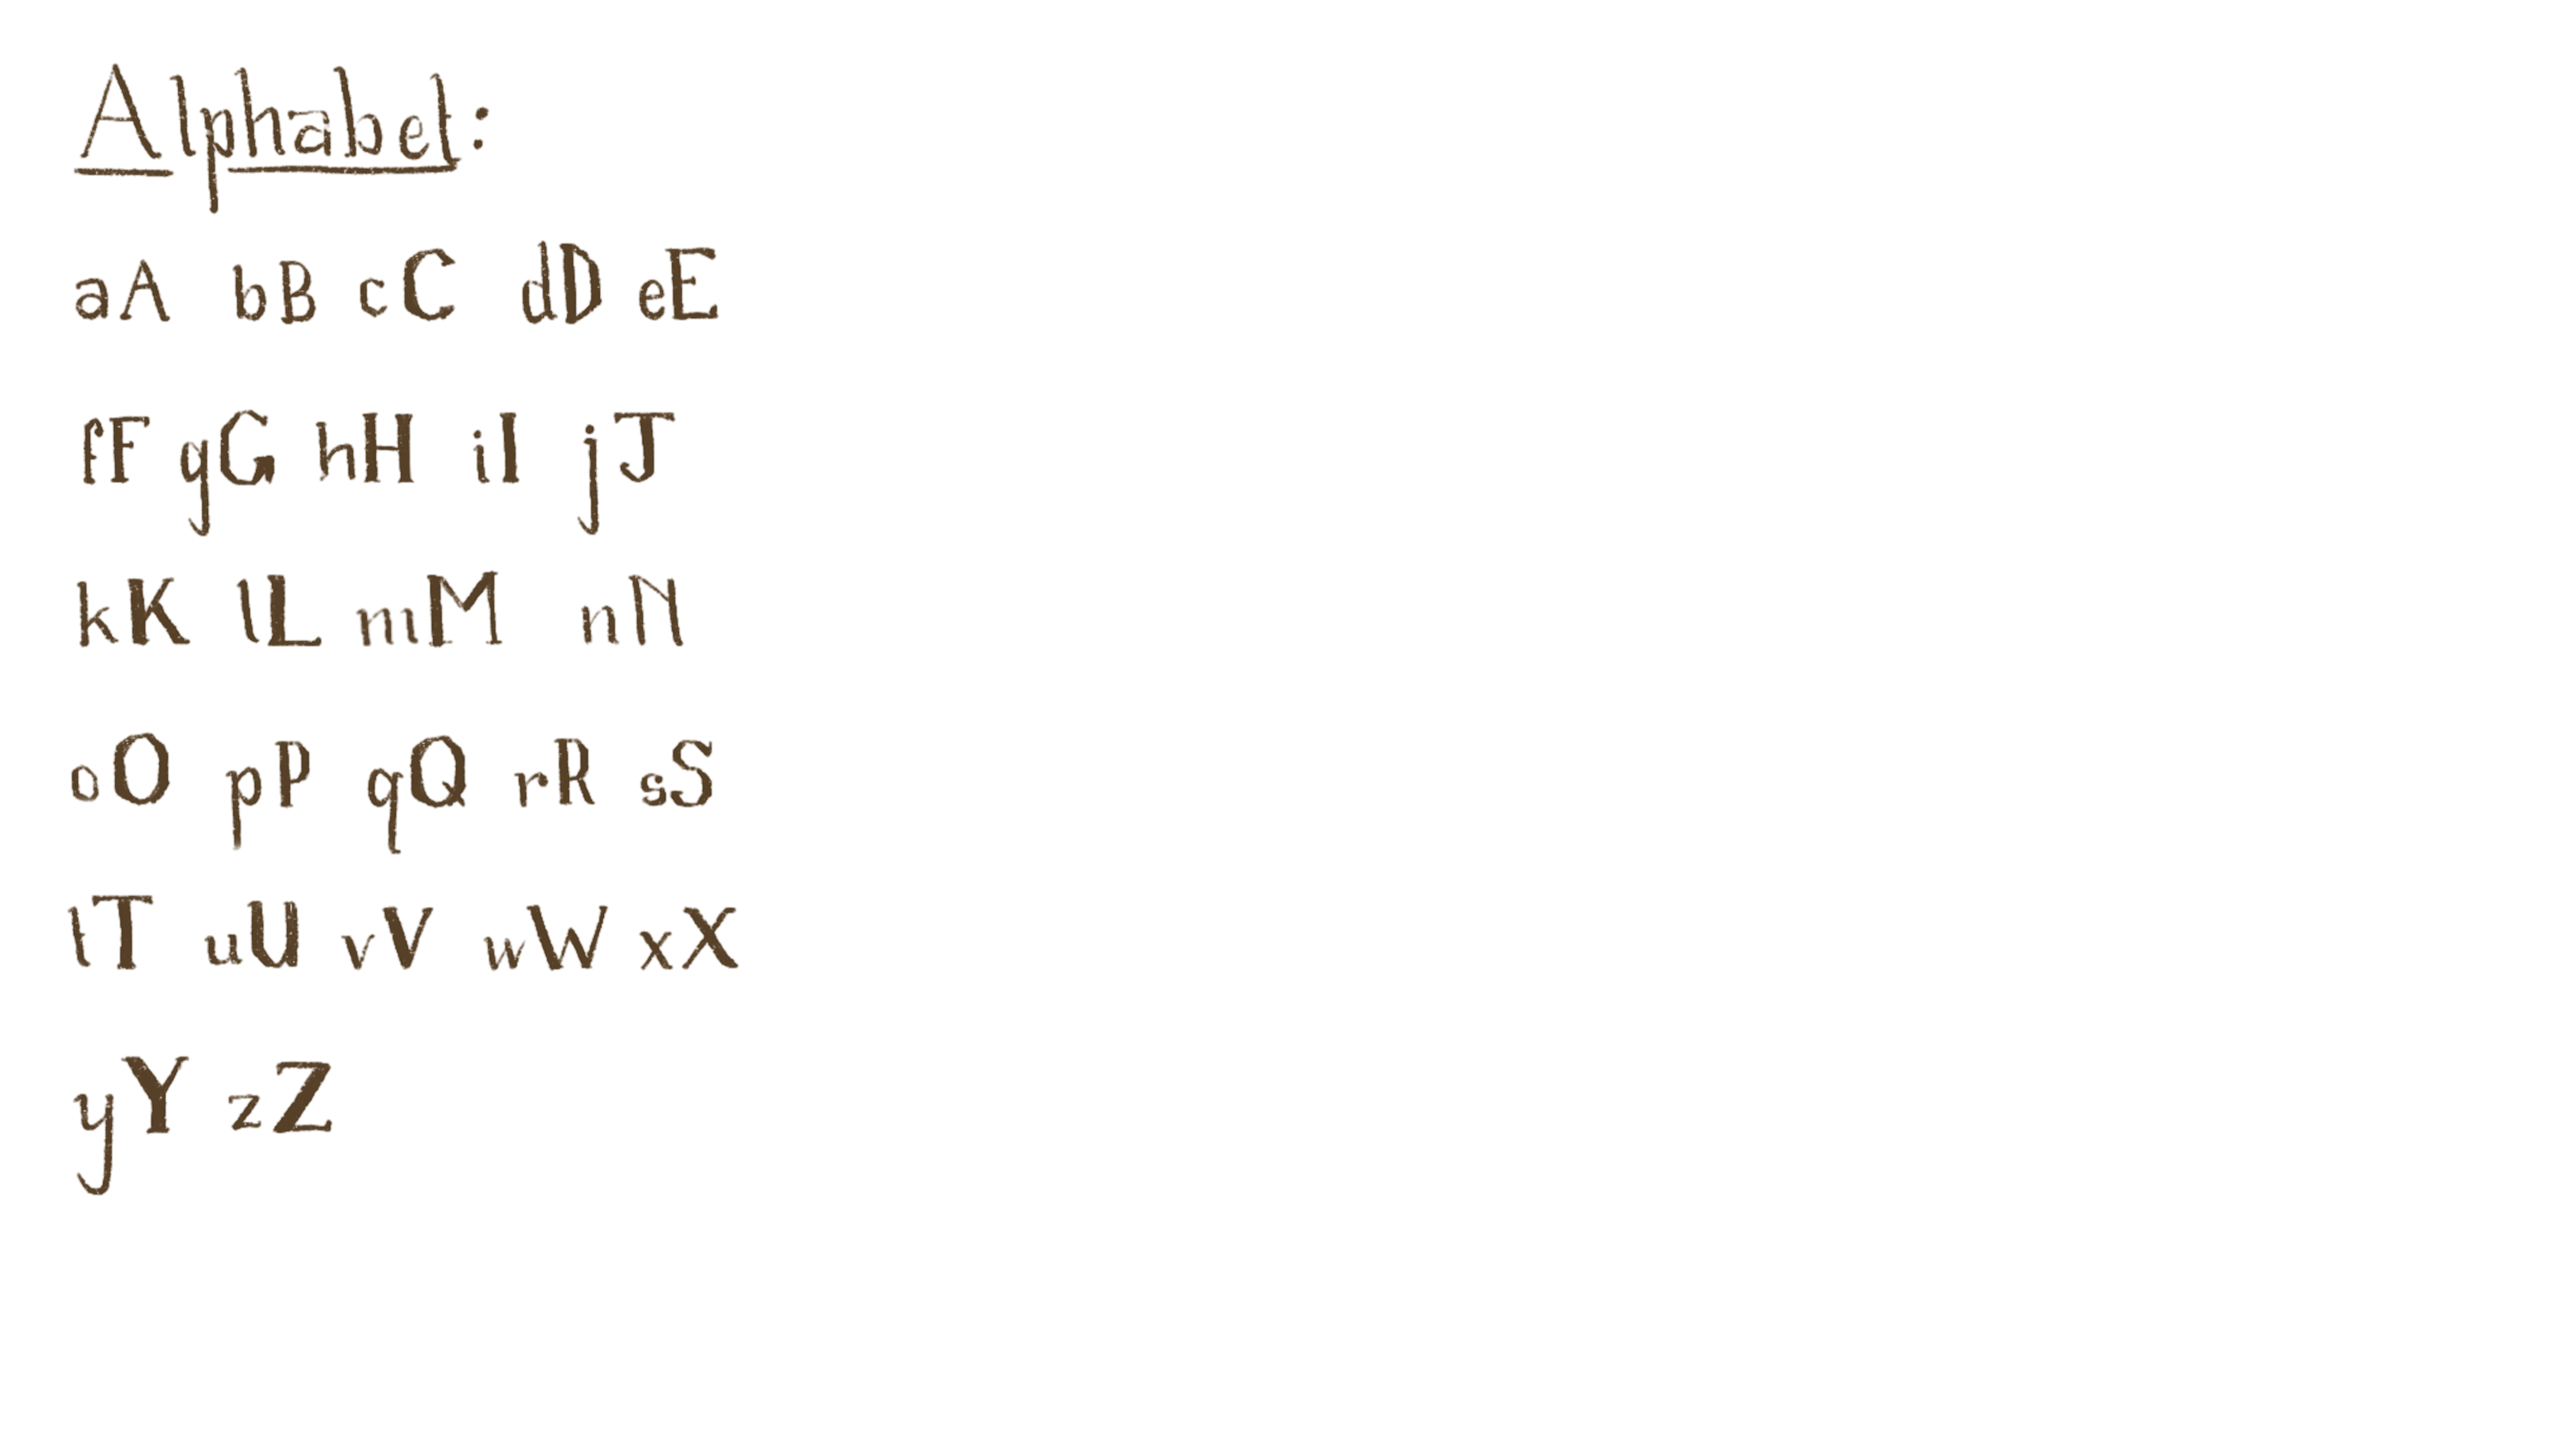 Alphabet:
aA bB cC dD eE
fF gG hH iI jJ
kK lL mM nN
oO pP qQ rR sS
tT uU vV wW xX
yY zZ